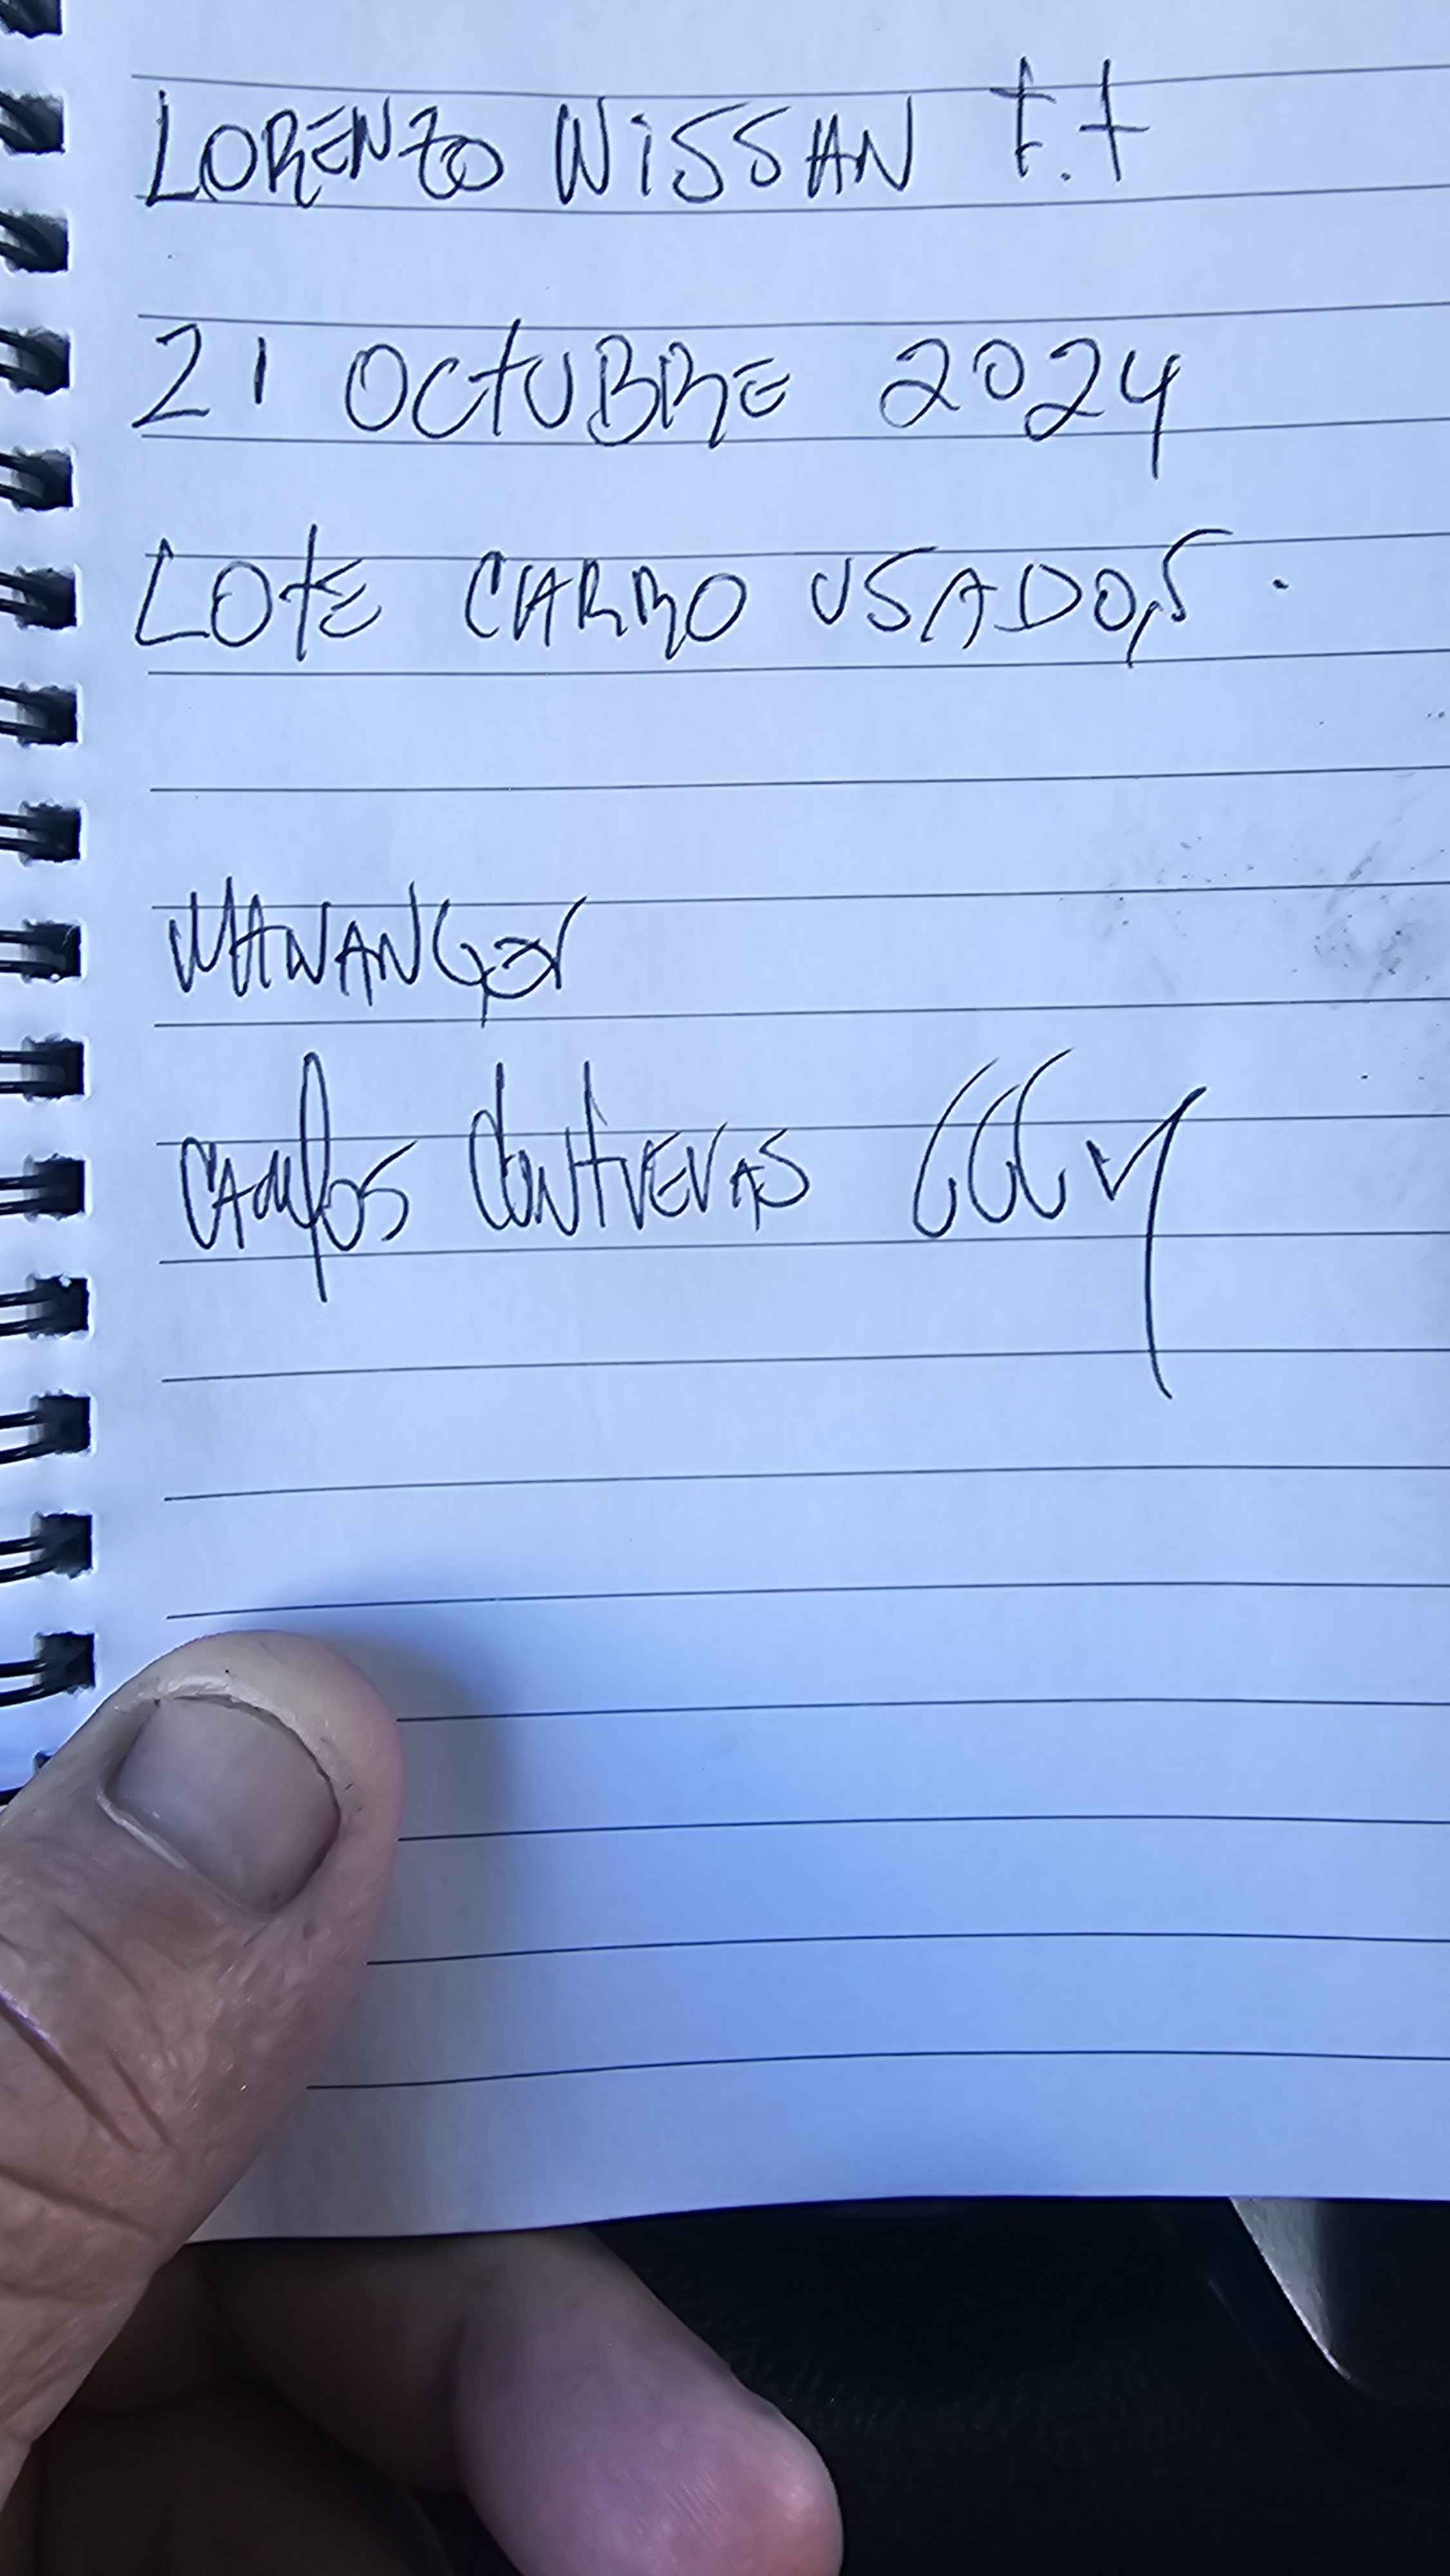 LORENZO NISSAN t.t
21 OCTUBRE 2024
LOTE CARRO USADOS.
MANANGER
CARLOS CONTRERAS